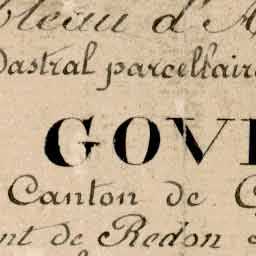 bleau d'A
Dastral parcellaire
GOVE
Canton de G
nt de Redon